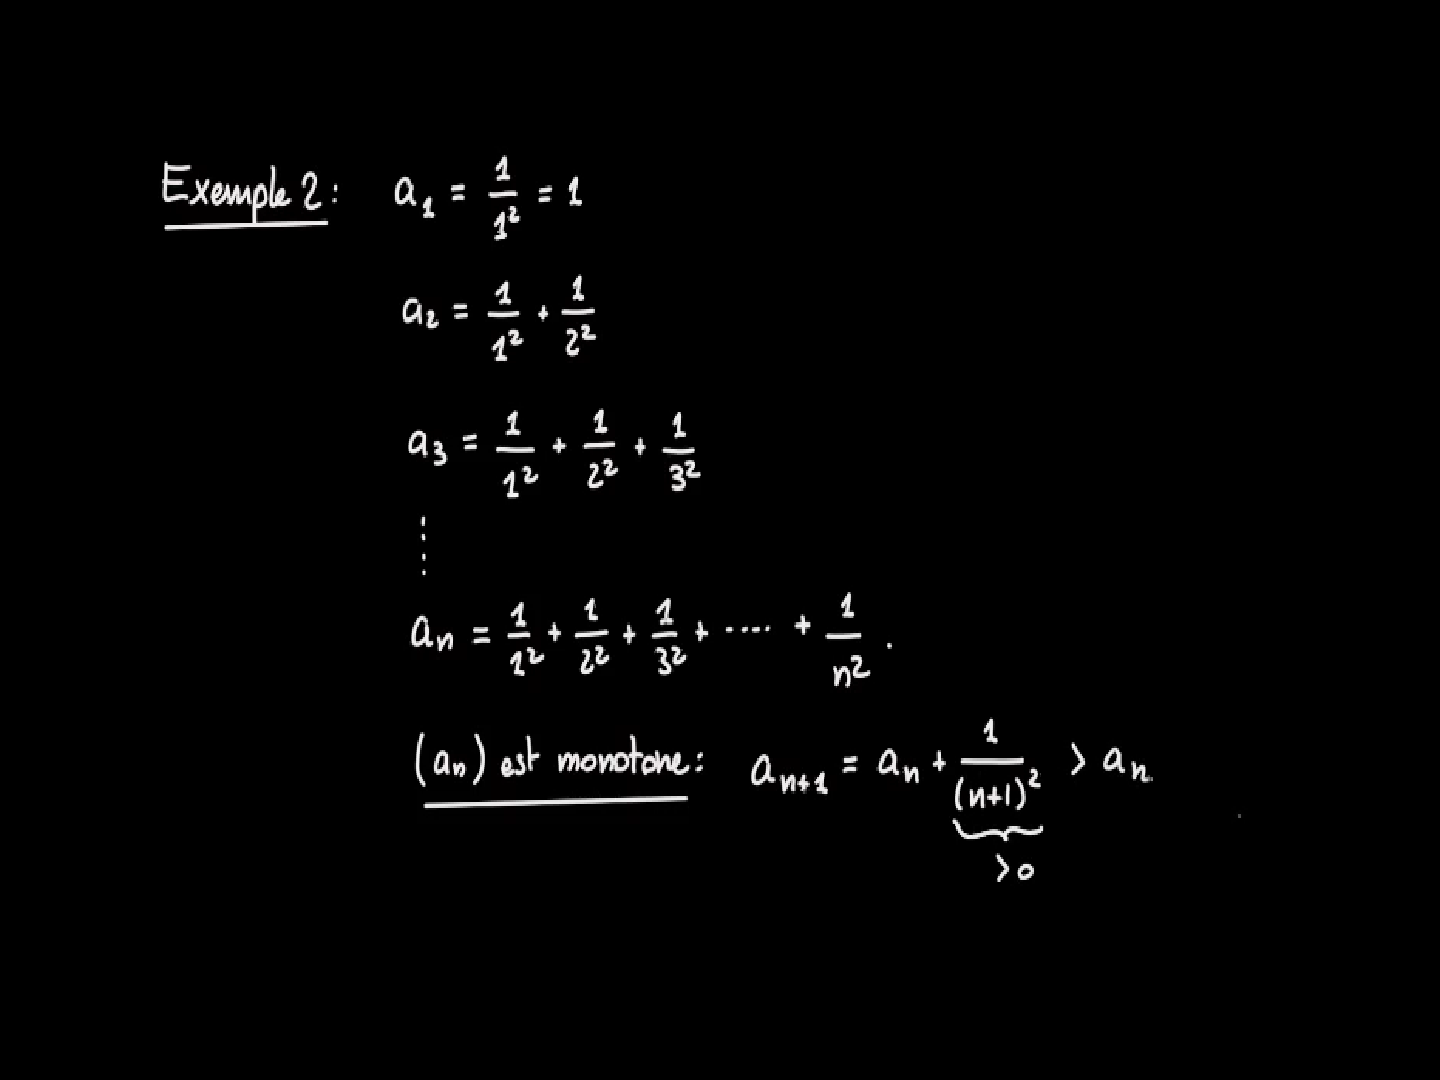 Exemple 2: a₁ = 1/1² = 1
a₂ = 1/1² + 1/2²
a₃ = 1/1² + 1/2² + 1/3²
⋮
aₙ = 1/1² + 1/2² + 1/3² + ..... + 1/n² .
(aₙ) est monotone: aₙ₊₁ = aₙ + 1/(n+1)² > aₙ
>0